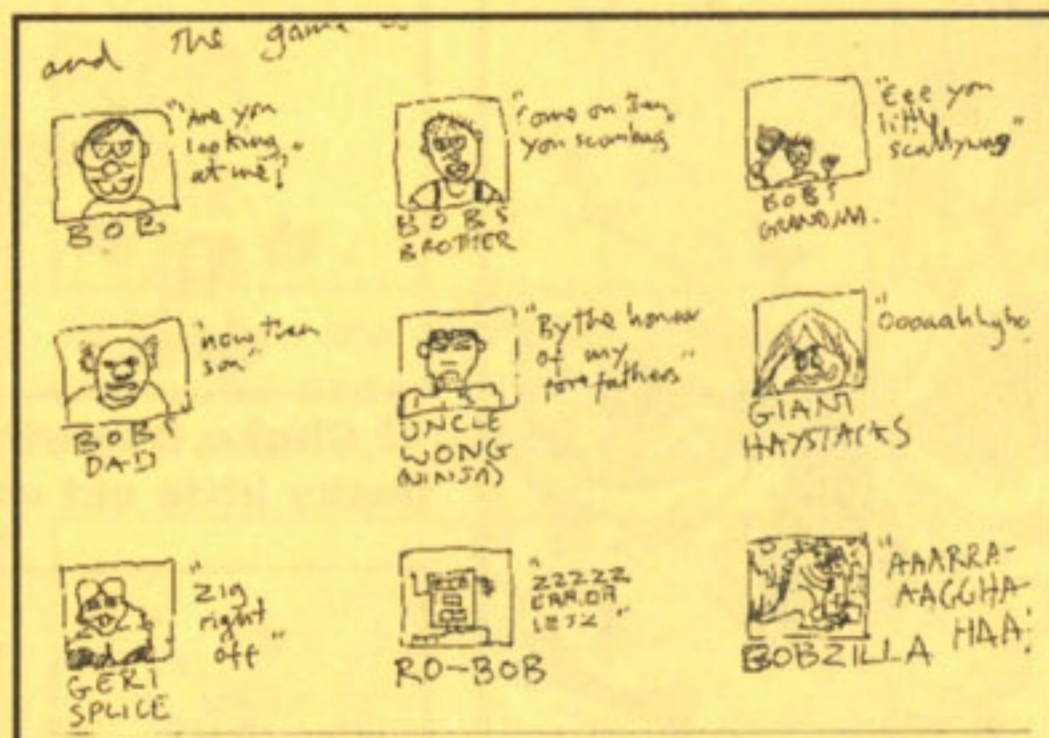 and The game
"Are you
looking
at me!"
BOB
"Come on then
you scumbag
BOBS
BROTHER
"Eee you
little
scallywag"
BOBS
GRANDMA.
"now then
son"
BOBS
DAD
"By the honour
of my
forefathers"
UNCLE
WONG
(NINJA)
GIANT
HAYSTACKS
"Zig
right
off"
GERI
SPLICE
"ZZZZZ
ERROR
RO-BOB
"AAARRA-
AAGGHA-
HAA!
BOBZILLA